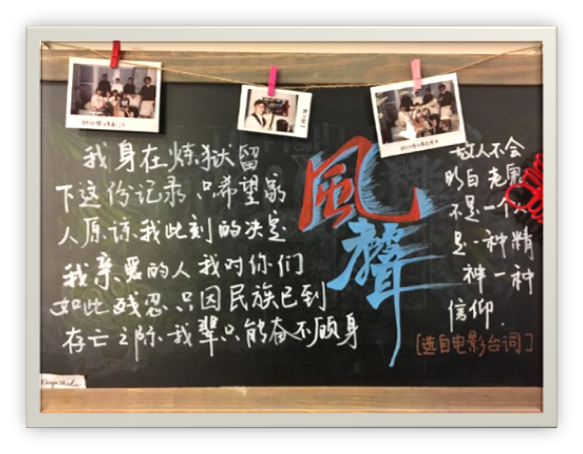 我身在炼狱留
下这份记录 只希望家
人原谅我此刻的决定
我亲爱的人 我对你们
如此残忍只因民族已到
存亡之际 我辈只能奋不顾身
風聲
敌人不会
明白 老鬼
不是一个人
是一种精
神 一种
信仰.
[选自电影台词]